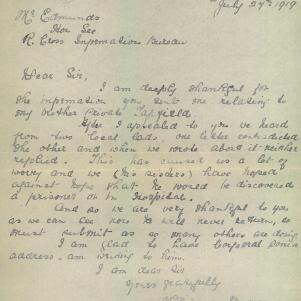 July 27th 1919
Mr Edmunds
Hon Sec
R. Cross Information Bureau
Dear Sir,
I am deeply thankful for
the information you sent me relating to
my brother Private Tapfield.
After I appealed to you we heard
from two local lads, one letter contradicted
the other and when we wrote about it neither
replied. This has caused us a lot of
worry and we (his sisters) have hoped
against hope that he would be discovered
a prisoner or in Hospital.
And so we are very thankful to you
as we can see now he will never return, so
must submit as so many others are doing
I am glad to have Corporal
address, am writing to him.
I am dear Sir
Yours gratefully